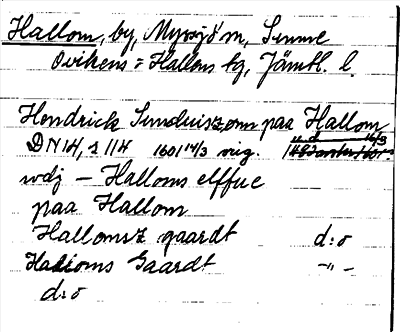 Hallom, by, Myssjö sn, Sunne
Ovikens = Hallens tg, Jämtl. l.
Hendrick Sunduiszønn paa Hallom
DN 14, s 114 1601 14/3 orig.
wdj — Halloms elffue
paa Hallom
Hallomsz gaardt d:o
Halloms Gaardt –"–
d:o